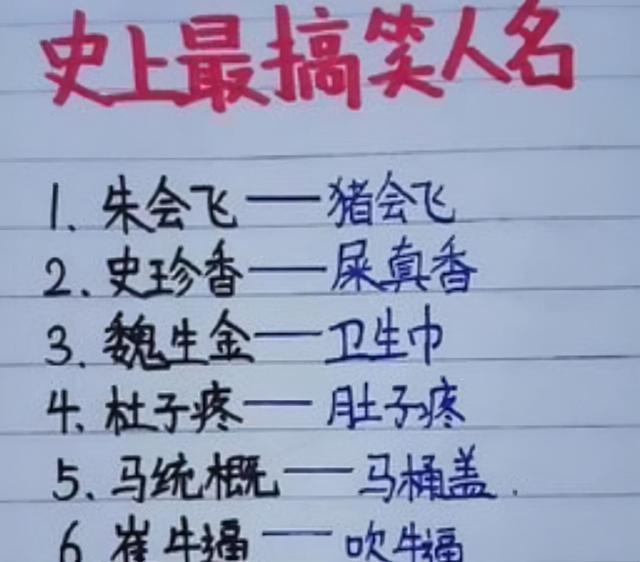 史上最搞笑人名
1. 朱会飞——猪会飞
2. 史珍香——屎真香
3. 魏生金——卫生巾
4. 杜子疼——肚子疼
5. 马统概——马桶盖.
6 崔牛逼——吹牛逼